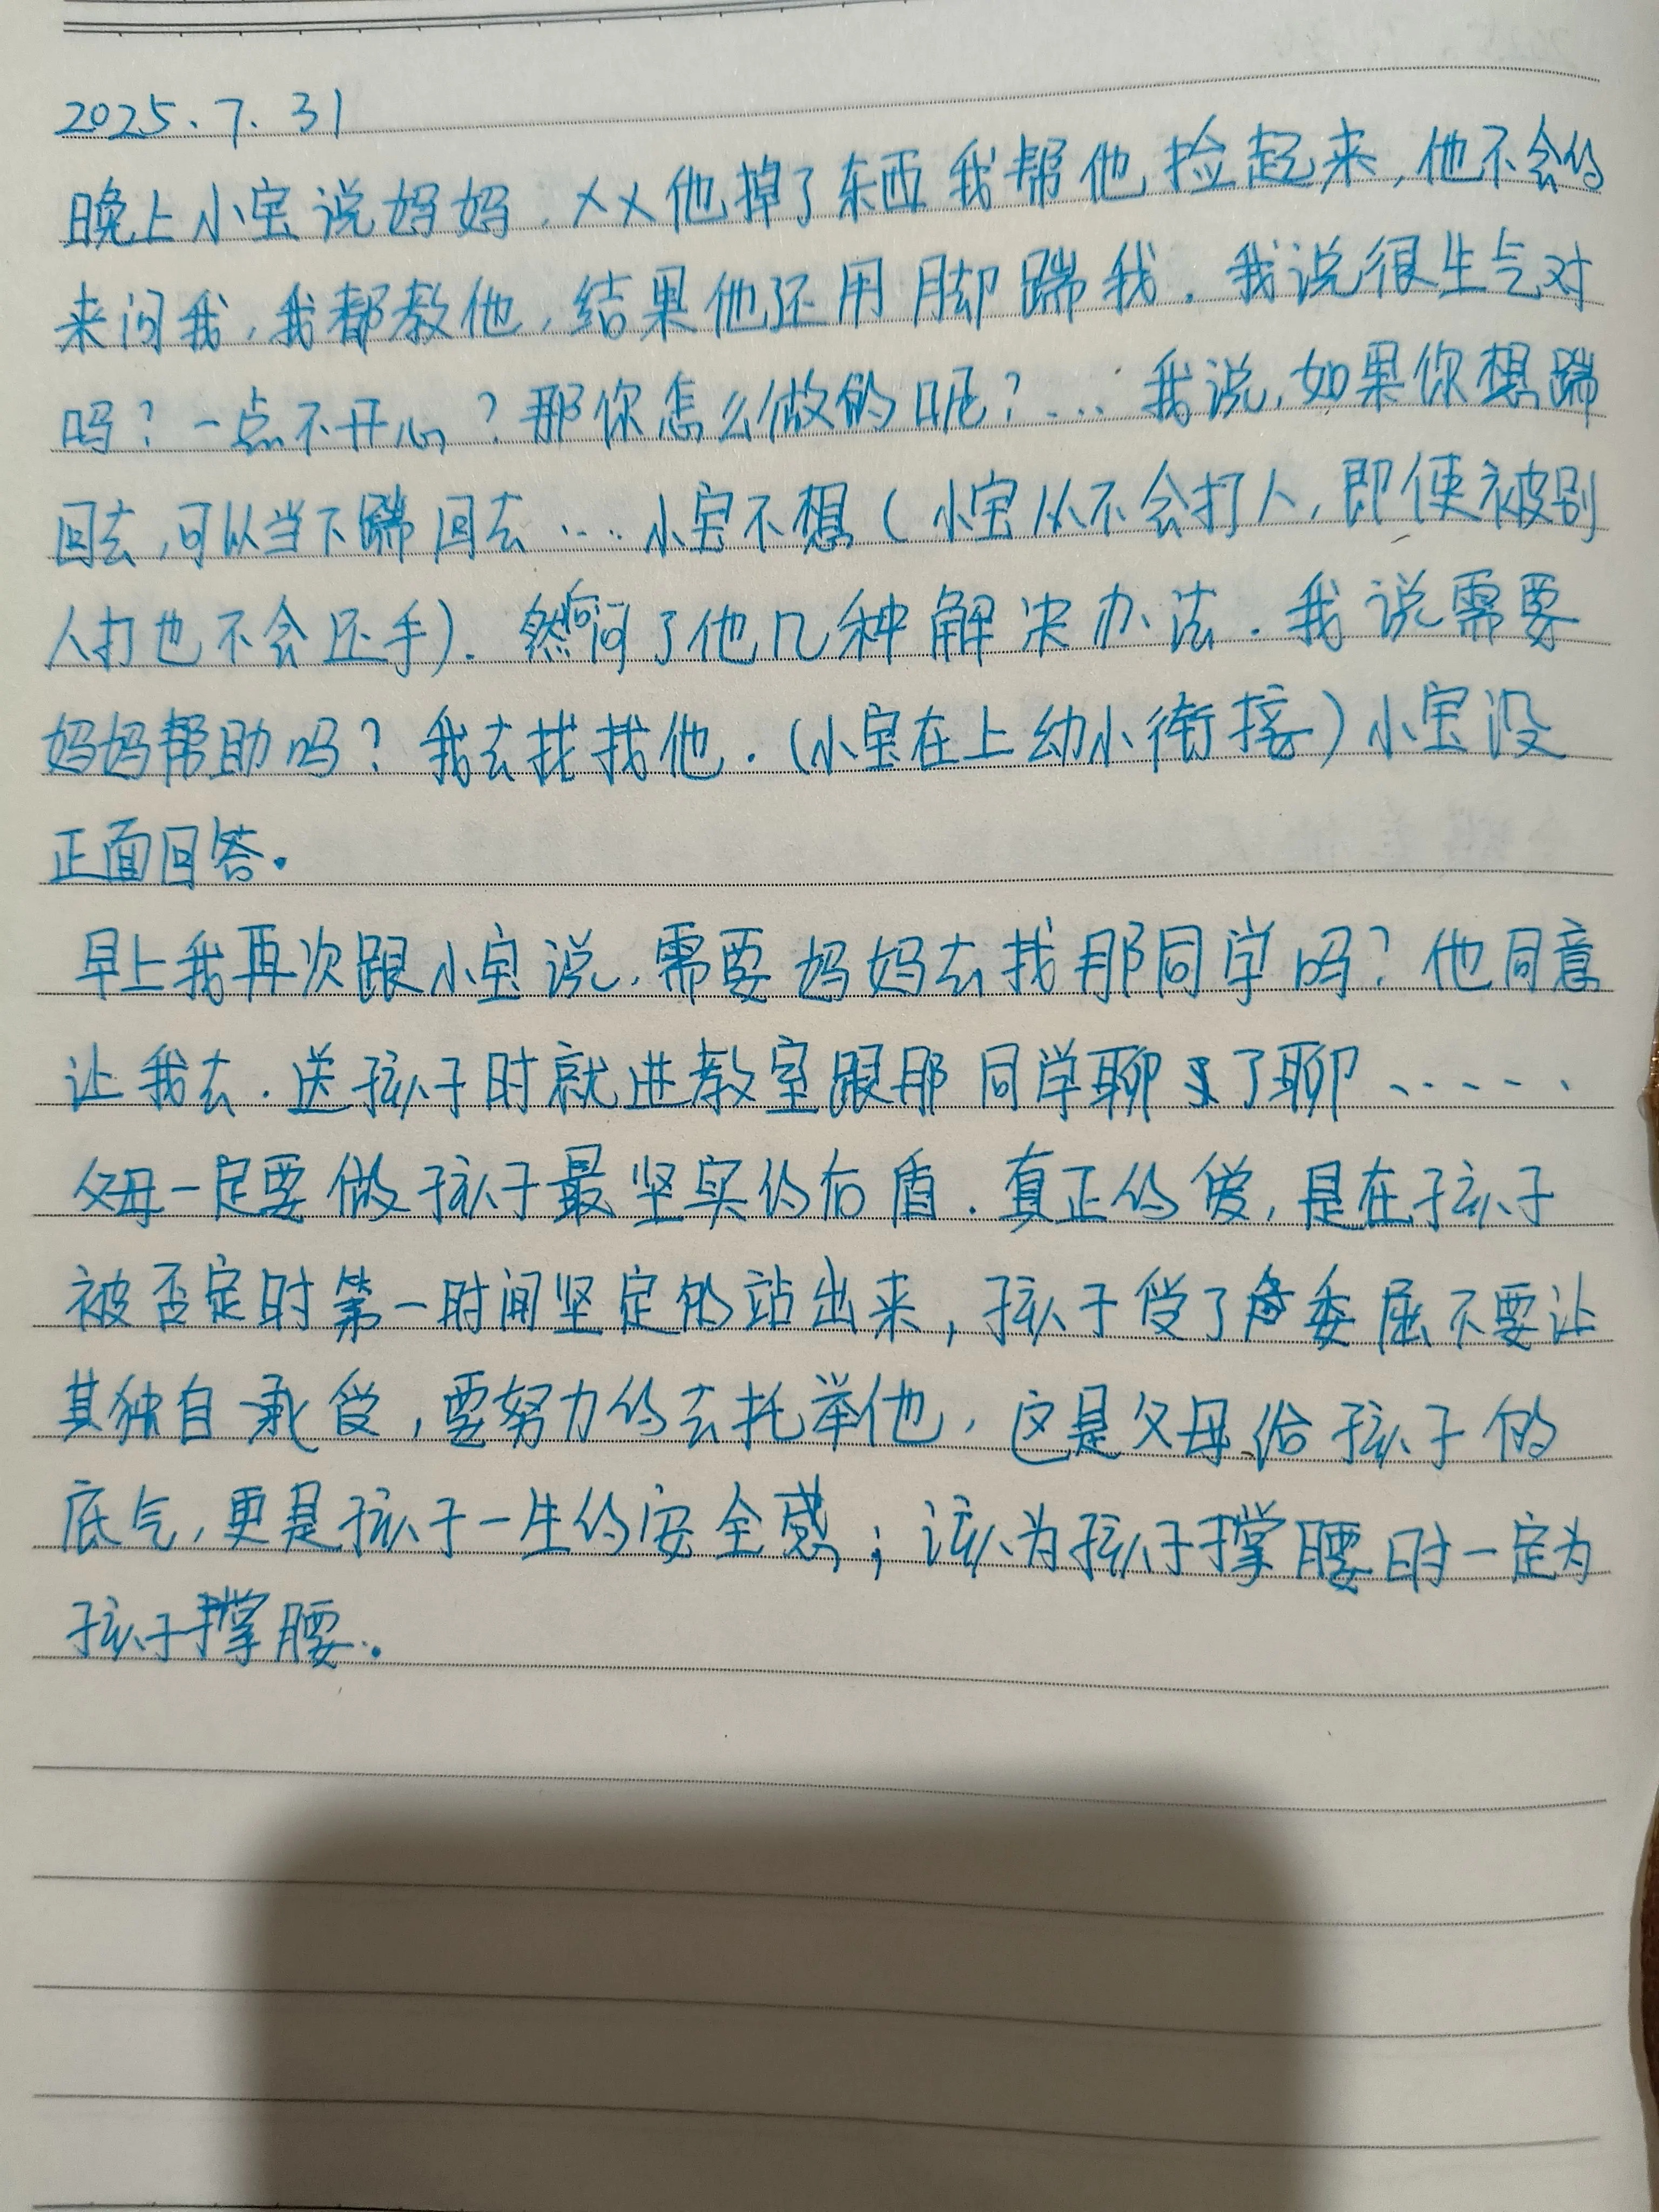 2025.7.31
晚上小宝说妈妈,XX他掉了东西我帮他捡起来,他不会的
来问我,我都教他,结果他还用脚踹我.我说很生气对
吗?一点不开心?那你怎么做的呢?...我说,如果你想踹
回去,可以当下踹回去.....小宝不想(小宝从不会打人,即使被别
人打也不会还手).然后问了他几种解决办法.我说需要
妈妈帮助吗?我去找找他.(小宝在上幼小衔接)小宝没
正面回答.
早上我再次跟小宝说,需要妈妈去找那同学吗?他同意
让我去.送孩子时就进教室跟那同学聊了聊......
父母一定要做孩子最坚实的后盾.真正的爱,是在孩子
被否定时第一时间坚定的站出来,孩子受了委屈不要让
其独自承受,要努力的去托举他,这是父母给孩子的
底气,更是孩子一生的安全感;该为孩子撑腰时一定为
孩子撑腰.